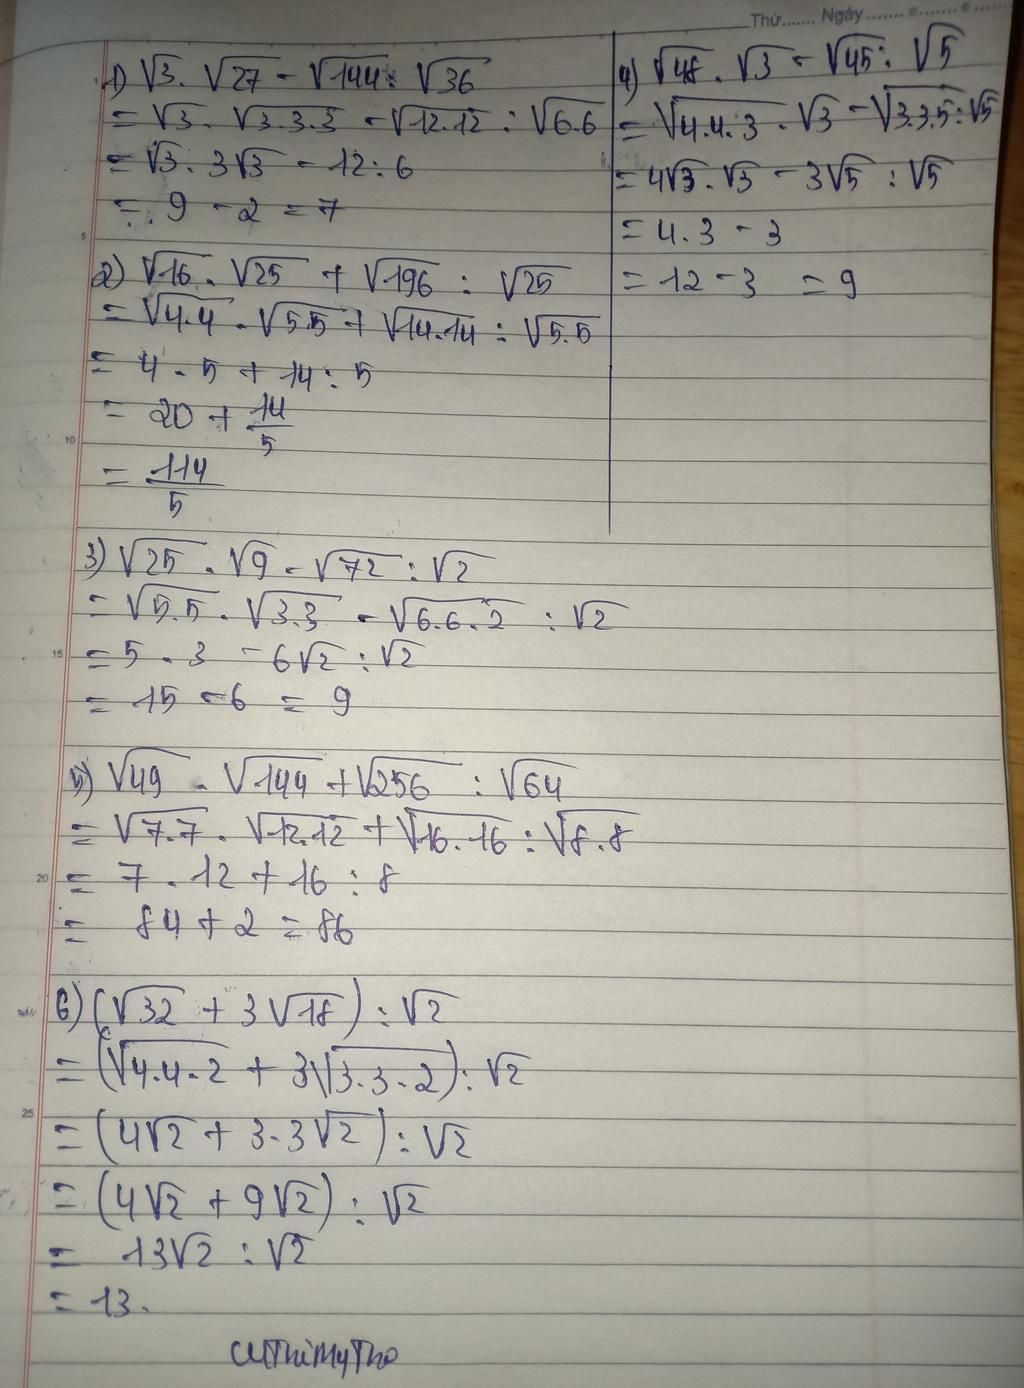 Thứ....... Ngày ....... ...... ......
1) √3 . √27 - √144 : √36
= √3 . √3.3.3 - √12.12 : √6.6
= √3 . 3√3 - 12 : 6
= 9 - 2 = 7
2) √16 . √25 + √196 : √25
= √4.4 . √5.5 + √14.14 : √5.5
= 4 . 5 + 14 : 5
= 20 + 14/5
= 114/5
4) √48 . √3 - √45 : √5
= √4.4.3 . √3 - √3.3.5 : √5
= 4√3 . √3 - 3√5 : √5
= 4.3 - 3
= 12 - 3 = 9
3) √25 . √9 - √72 : √2
= √5.5 . √3.3 - √6.6.2 : √2
= 5 . 3 - 6√2 : √2
= 15 - 6 = 9
5) √49 . √144 + √256 : √64
= √7.7 . √12.12 + √16.16 : √8.8
= 7 . 12 + 16 : 8
= 84 + 2 = 86
6) (√32 + 3√18) : √2
= (√4.4.2 + 3√3.3.2) : √2
= (4√2 + 3.3√2) : √2
= (4√2 + 9√2) : √2
= 13√2 : √2
= 13.
5
10
15
20
25